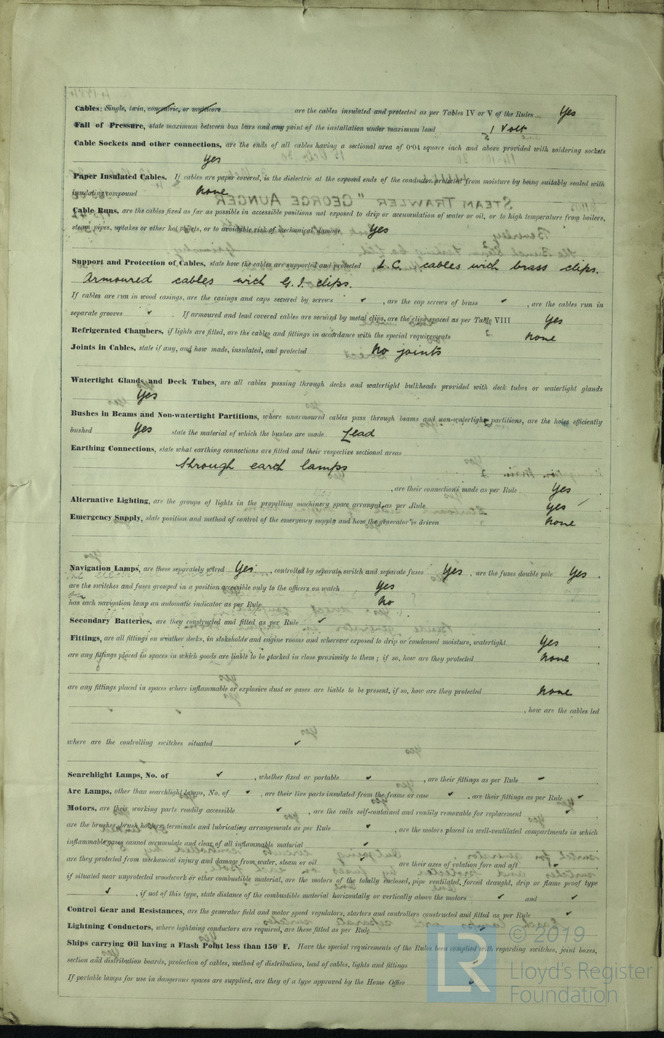 Cables: Single, twin, concentric, or multicore are the cables insulated and protected as per Tables IV or V of the Rules Yes
Fall of Pressure, state maximum between bus bars and any point of the installation under maximum load 1 Volt
Cable Sockets and other connections, are the ends of all cables having a sectional area of 0·04 square inch and above provided with soldering sockets
Yes
Paper Insulated Cables. If cables are paper covered, is the dielectric at the exposed ends of the conductor protected from moisture by being suitably sealed with
insulating compound none
STEAM TRAWLER "GEORGE AUNGER"
Cable Runs, are the cables fixed as far as possible in accessible positions not exposed to drip or accumulation of water or oil, or to high temperature from boilers,
steam pipes, uptakes or other hot objects, or to avoidable risk of mechanical damage Yes
Support and Protection of Cables, state how the cables are supported and protected L.C. cables with brass clips.
Armoured cables with G.I. clips.
If cables are run in wood casings, are the casings and caps secured by screws ✓ , are the cap screws of brass ✓ , are the cables run in
separate grooves ✓ If armoured and lead covered cables are secured by metal clips, are the clips spaced as per Table VIII Yes
Refrigerated Chambers, if lights are fitted, are the cables and fittings in accordance with the special requirements none
Joints in Cables, state if any, and how made, insulated, and protected No joints
Watertight Glands and Deck Tubes, are all cables passing through decks and watertight bulkheads provided with deck tubes or watertight glands
Yes
Bushes in Beams and Non-watertight Partitions, where unarmoured cables pass through beams and non-watertight partitions, are the holes efficiently
bushed Yes state the material of which the bushes are made Lead
Earthing Connections, state what earthing connections are fitted and their respective sectional areas
through earth lamps
, are their connections made as per Rule Yes
Alternative Lighting, are the groups of lights in the propelling machinery space arranged as per Rule Yes
Emergency Supply, state position and method of control of the emergency supply and how the generator is driven none
Navigation Lamps, are these separately wired Yes controlled by separate switch and separate fuses Yes , are the fuses double pole Yes
are the switches and fuses grouped in a position accessible only to the officers on watch Yes
has each navigation lamp an automatic indicator as per Rule No
Secondary Batteries, are they constructed and fitted as per Rule ✓
Fittings, are all fittings on weather decks, in stokeholds and engine rooms and wherever exposed to drip or condensed moisture, watertight Yes
are any fittings placed in spaces in which goods are liable to be stacked in close proximity to them; if so, how are they protected none
are any fittings placed in spaces where inflammable or explosive dust or gases are liable to be present, if so, how are they protected none
, how are the cables led
where are the controlling switches situated ✓
Searchlight Lamps, No. of ✓ , whether fixed or portable ✓ , are their fittings as per Rule ✓
Arc Lamps, other than searchlight lamps, No. of ✓ , are their live parts insulated from the frame or case ✓ , are their fittings as per Rule ✓
Motors, are their working parts readily accessible ✓ , are the coils self-contained and readily removable for replacement
are the brushes, brush holders, terminals and lubricating arrangements as per Rule ✓ , are the motors placed in well-ventilated compartments in which
inflammable gases cannot accumulate and clear of all inflammable material ✓
are they protected from mechanical injury and damage from water, steam or oil ✓ are their axes of rotation fore and aft ✓
if situated near unprotected woodwork or other combustible material, are the motors of the totally enclosed, pipe ventilated, forced draught, drip or flame proof type
✓ , if not of this type, state distance of the combustible material horizontally or vertically above the motors ✓ and ✓
Control Gear and Resistances, are the generator field and motor speed regulators, starters and controllers constructed and fitted as per Rule ✓
Lightning Conductors, where lightning conductors are required, are these fitted as per Rule
Ships carrying Oil having a Flash Point less than 150° F. Have the special requirements of the Rules been complied with regarding switches, joint boxes,
section and distribution boards, protection of cables, method of distribution, lead of cables, lights and fittings
If portable lamps for use in dangerous spaces are supplied, are they of a type approved by the Home Office ✓
© 2019
LR
Lloyd's Register
Foundation